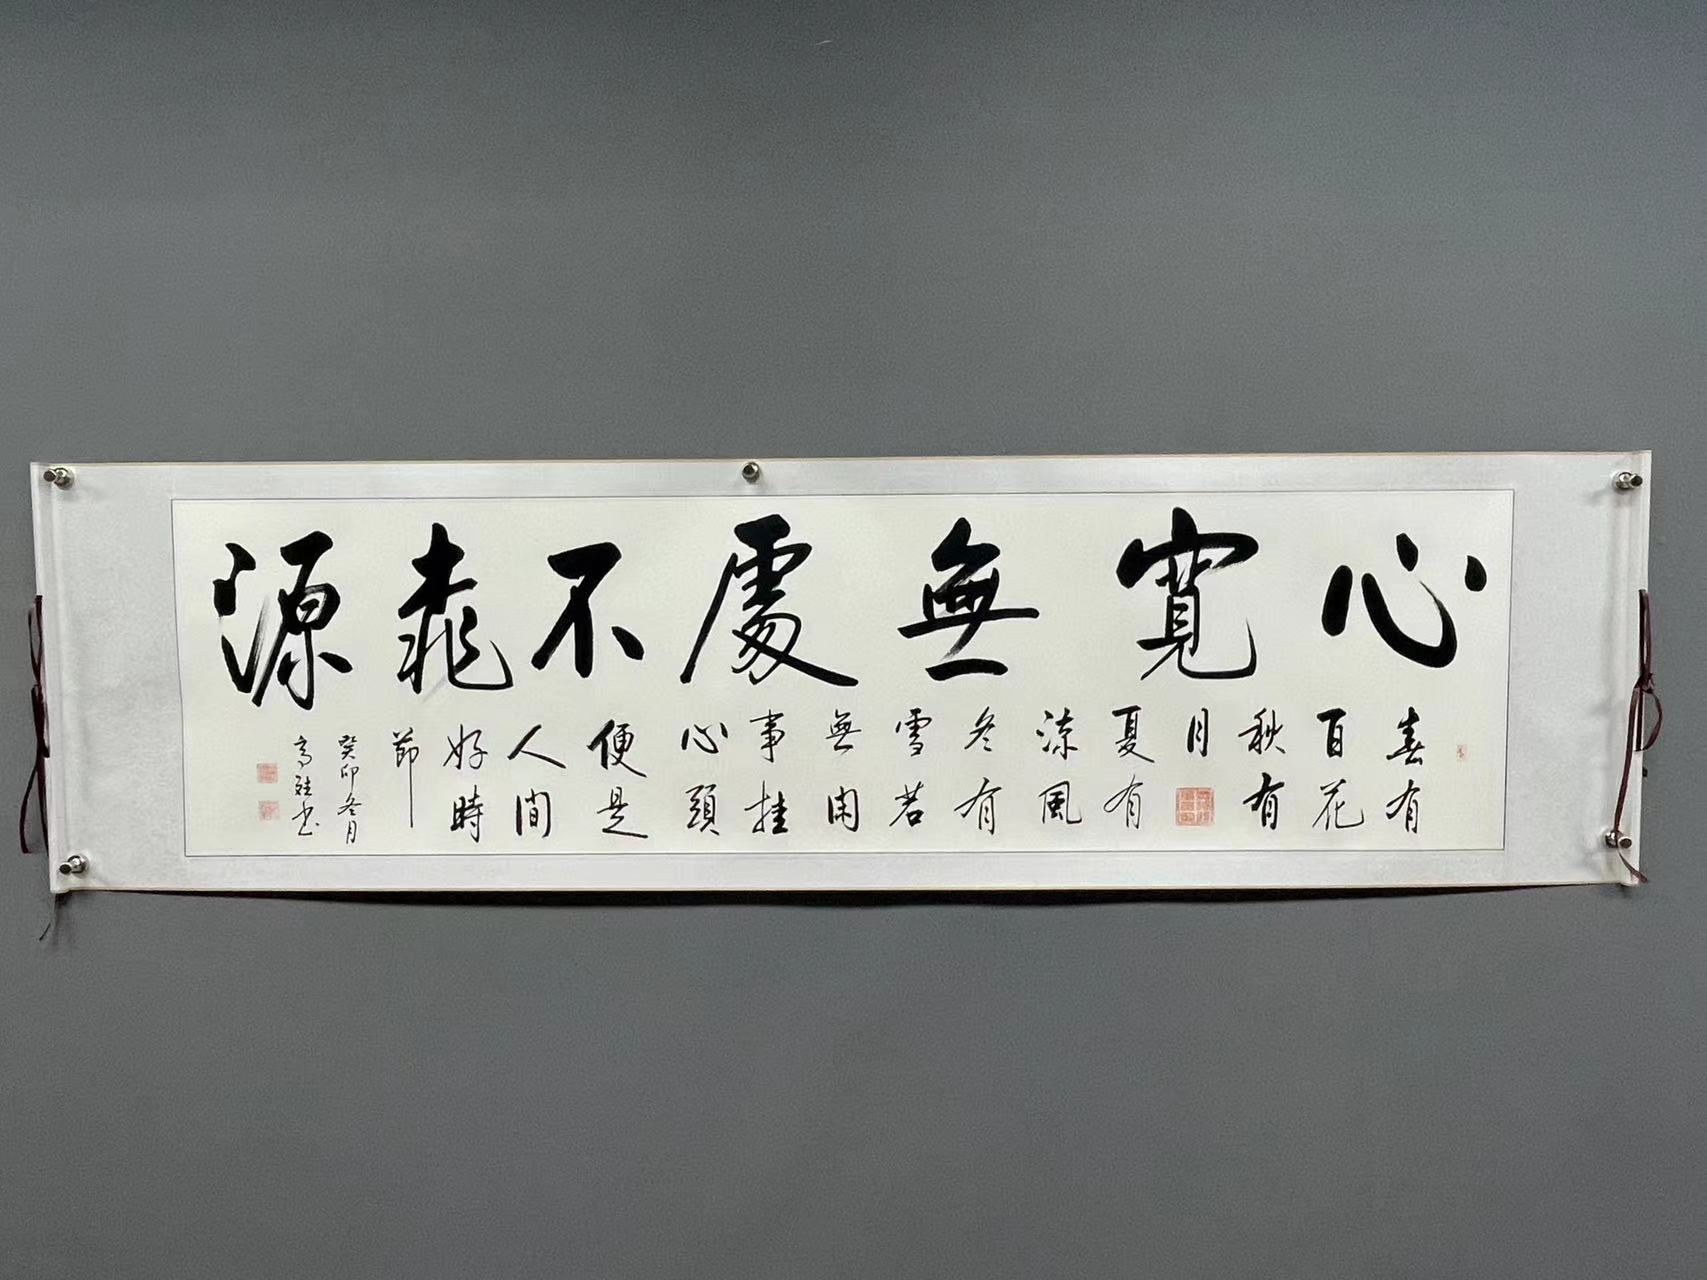 心寬無處不桃源
春有
百花
秋有
月
夏有
涼風
冬有
雪若
無閑
事挂
心頭
便是
人間
好時
節
癸卯冬月
高书